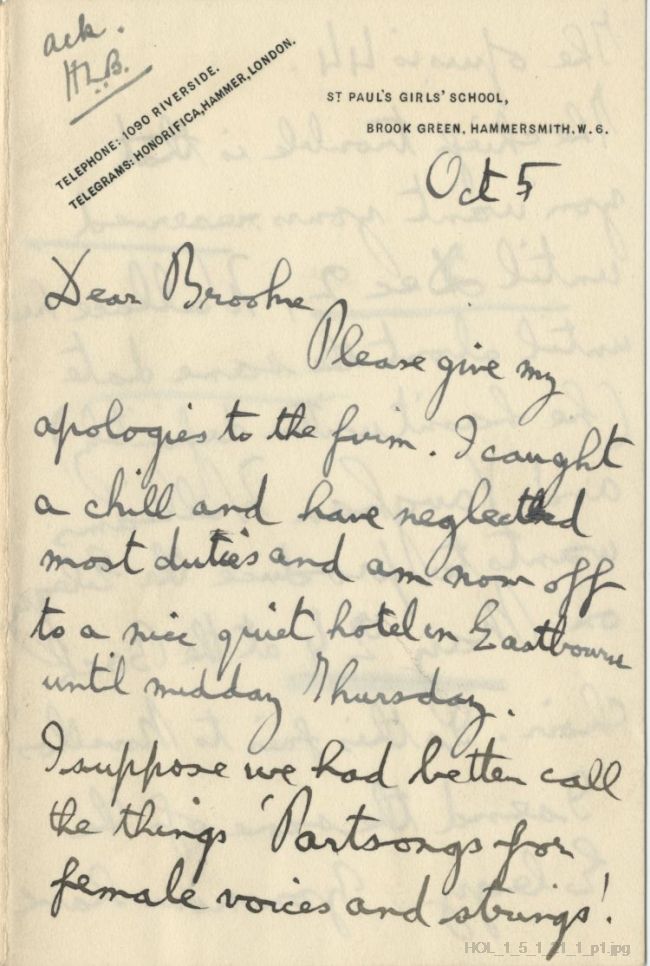 ack.
H.L.B.
TELEPHONE: 1090 RIVERSIDE.
TELEGRAMS: HONORIFICA, HAMMER, LONDON.
ST PAUL'S GIRLS' SCHOOL,
BROOK GREEN, HAMMERSMITH, W. 6.
Oct 5
Dear Brooke
Please give my
apologies to the firm. I caught
a chill and have neglected
most duties and am now off
to a nice quiet hotel in Eastbourne
until midday Thursday.
I suppose we had better call
the things 'Partsongs for
female voices and strings'.
HOL_1_5_1_21_1_p1.jpg